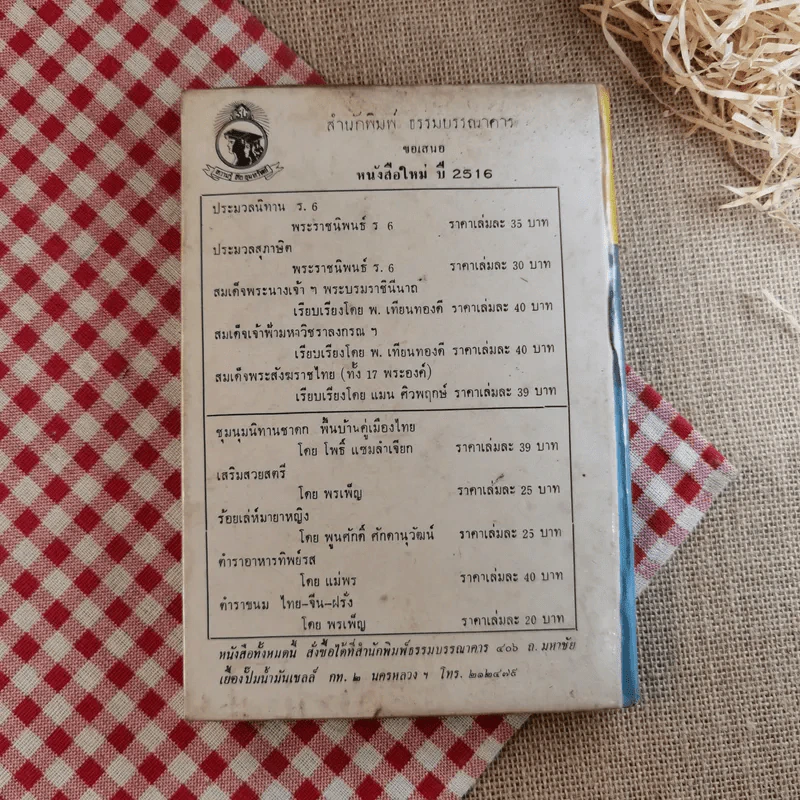 สำนักพิมพ์ ธรรมบรรณาคาร
ขอเสนอ
หนังสือใหม่ ปี 2516
ประมวลนิทาน ร. 6
พระราชนิพนธ์ ร 6 ราคาเล่มละ 35 บาท
ประมวลสุภาษิต
พระราชนิพนธ์ ร. 6 ราคาเล่มละ 30 บาท
สมเด็จพระนางเจ้า ฯ พระบรมราชินีนาถ
เรียบเรียงโดย พ. เทียนทองดี ราคาเล่มละ 40 บาท
สมเด็จเจ้าฟ้ามหาวชิราลงกรณ ฯ
เรียบเรียงโดย พ. เทียนทองดี ราคาเล่มละ 40 บาท
สมเด็จพระสังฆราชไทย (ทั้ง 17 พระองค์)
เรียบเรียงโดย แมน ศิวพฤกษ์ ราคาเล่มละ 39 บาท
ชุมนุมนิทานชาดก พื้นบ้านคู่เมืองไทย
โดย โพธิ์ แซมลำเจียก ราคาเล่มละ 39 บาท
เสริมสวยสตรี
โดย พรเพ็ญ ราคาเล่มละ 25 บาท
ร้อยเล่ห์มายาหญิง
โดย พูนศักดิ์ ศักดานุวัฒน์ ราคาเล่มละ 25 บาท
ตำราอาหารทิพย์รส
โดย แม่พร ราคาเล่มละ 40 บาท
ตำราขนม ไทย-จีน-ฝรั่ง
โดย พรเพ็ญ ราคาเล่มละ 20 บาท
หนังสือทั้งหมดนี้ สั่งซื้อได้ที่สำนักพิมพ์ธรรมบรรณาคาร ๔๐๖ ถ. มหาชัย
เยื้องปั๊มน้ำมันเชลล์ กท. ๒ นครหลวง ฯ โทร. ๒๑๒๔๗๙